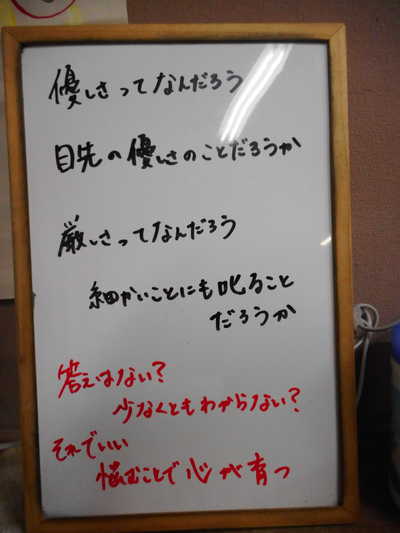 優しさってなんだろう
目先の優しさのことだろうか
厳しさってなんだろう
細かいことにも叱ること
だろうか
答えはない?
少なくともわからない?
それでいい
悩むことで心が育つ